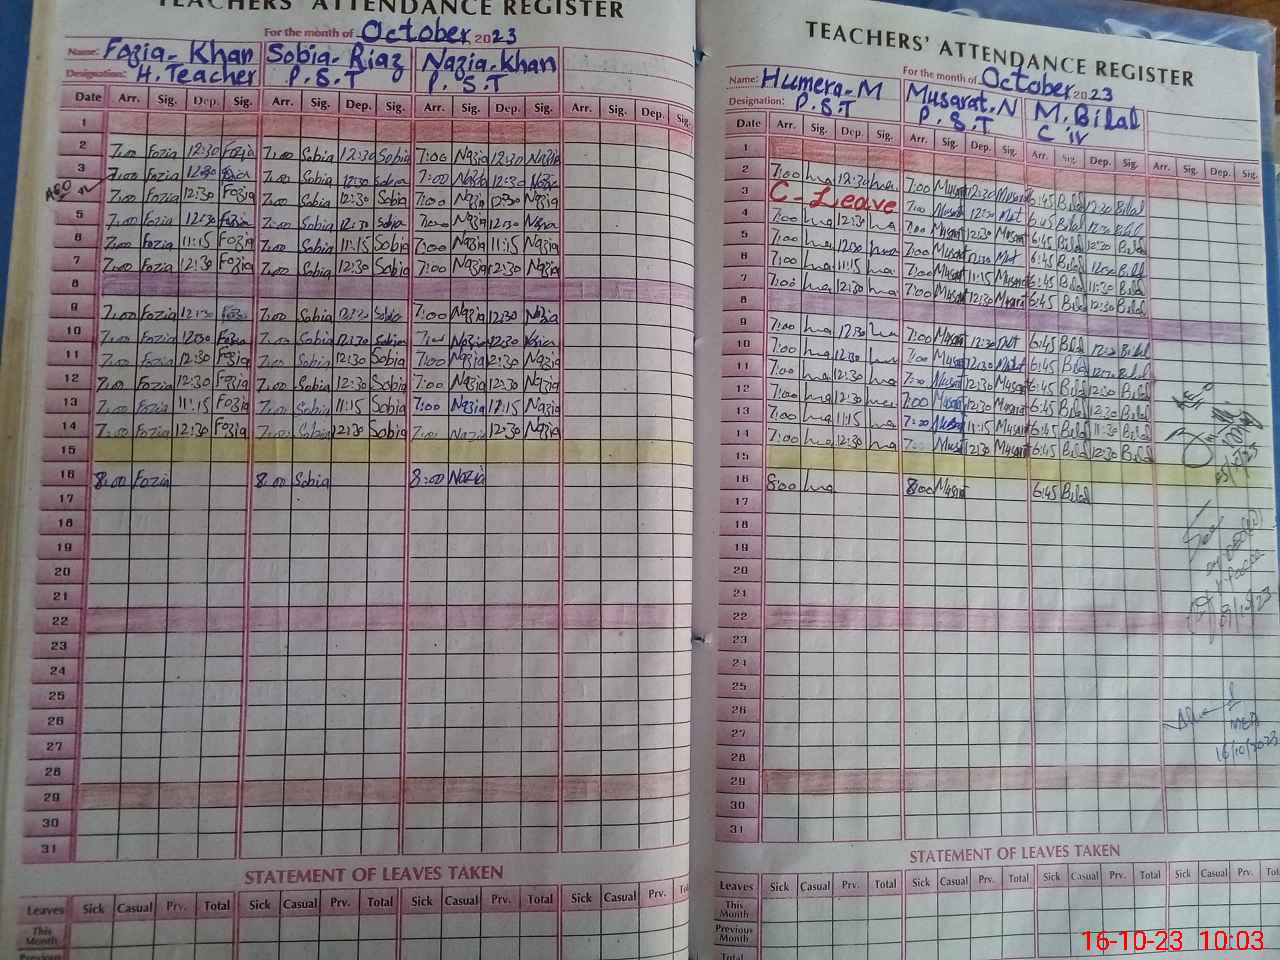 TEACHERS' ATTENDANCE REGISTER
For the month of October 2023
Name: Fozia-Khan Sobia-Riaz Nazia-Khan
Designation: H.Teacher P.S.T P.S.T
Date Arr. Sig. Dep. Sig. Arr. Sig. Dep. Sig. Arr. Sig. Dep. Sig. Arr. Sig. Dep. Sig.
1
2 7:00 Fozia 12:30 Fozia 7:00 Sobia 12:30 Sobia 7:00 Nazia 12:30 Nazia
3 7:00 Fozia 12:30 Fozia 7:00 Sobia 12:30 Sobia 7:00 Nazia 12:30 Nazia
4 7:00 Fozia 12:30 Fozia 7:00 Sobia 12:30 Sobia 7:00 Nazia 12:30 Nazia
5 7:00 Fozia 12:30 Fozia 7:00 Sobia 12:30 Sobia 7:00 Nazia 12:30 Nazia
6 7:00 Fozia 11:15 Fozia 7:00 Sobia 11:15 Sobia 7:00 Nazia 11:15 Nazia
7 7:00 Fozia 12:30 Fozia 7:00 Sobia 12:30 Sobia 7:00 Nazia 12:30 Nazia
8
9 7:00 Fozia 12:30 Fozia 7:00 Sobia 12:30 Sobia 7:00 Nazia 12:30 Nazia
10 7:00 Fozia 12:30 Fozia 7:00 Sobia 12:30 Sobia 7:00 Nazia 12:30 Nazia
11 7:00 Fozia 12:30 Fozia 7:00 Sobia 12:30 Sobia 7:00 Nazia 12:30 Nazia
12 7:00 Fozia 12:30 Fozia 7:00 Sobia 12:30 Sobia 7:00 Nazia 12:30 Nazia
13 7:00 Fozia 11:15 Fozia 7:00 Sobia 11:15 Sobia 7:00 Nazia 11:15 Nazia
14 7:00 Fozia 12:30 Fozia 7:00 Sobia 12:30 Sobia 7:00 Nazia 12:30 Nazia
15
16 8:00 Fozia 8:00 Sobia 8:00 Nazia
17
18
19
20
21
22
23
24
25
26
27
28
29
30
31
STATEMENT OF LEAVES TAKEN
Leaves Sick Casual Prv. Total Sick Casual Prv. Total Sick Casual Prv. Total Sick Casual Prv.
This Month
Previous
TEACHERS' ATTENDANCE REGISTER
For the month of October 2023
Name: Humera-M Musarat.N M.Bilal
Designation: P.S.T P.S.T C iv
Date Arr. Sig. Dep. Sig. Arr. Sig. Dep. Sig. Arr. Sig. Dep. Sig. Arr. Sig. Dep. Sig.
1
2 7:00 12:30 7:00 Musarat 12:30 Musarat 6:45 Bilal 12:30 Bilal
3 C-Leave 7:00 12:30 6:45 Bilal 12:30 Bilal
4 7:00 12:30 7:00 Musarat 12:30 Musarat 6:45 Bilal 12:30 Bilal
5 7:00 7:00 Musarat 6:45 Bilal Bilal
6 7:00 11:15 7:00 Musarat 11:15 Musarat 6:45 Bilal 11:30 Bilal
7 7:00 12:30 7:00 Musarat 12:30 Musarat 6:45 Bilal 12:30 Bilal
8
9 7:00 12:30 7:00 Musarat 12:30 6:45 Bilal Bilal
10 7:00 12:30 7:00 Musarat 12:30 6:45 Bilal Bilal
11 7:00 12:30 7:00 Musarat 12:30 Musarat 6:45 Bilal 12:30 Bilal
12 7:00 12:30 7:00 Musarat 12:30 Musarat 6:45 Bilal 12:30 Bilal
13 7:00 11:15 7:00 11:15 Musarat 6:45 Bilal 11:30 Bilal
14 7:00 12:30 12:30 Musarat 6:45 Bilal 12:30 Bilal
15
16 8:00 8:00 Musarat 6:45 Bilal
17
18
19
20
21
22
23
24
25
26
27
28
29
30
31
MEA
16/10/2023
STATEMENT OF LEAVES TAKEN
Leaves Sick Casual Prv. Total Sick Casual Prv. Total Sick Casual Prv. Total Sick Casual Prv.
This Month
Previous Month
Total
16-10-23 10:03